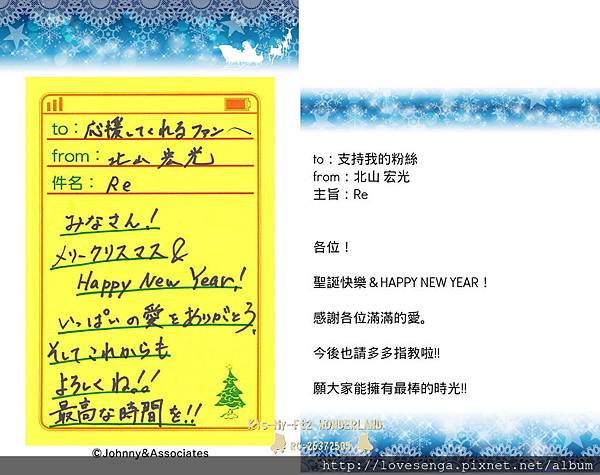 to：応援してくれるファンへ
from：北山 宏光
件名：Re
みなさん！
メリークリスマス&
Happy New Year!
いっぱいの愛をありがとう。
そしてこれからも
よろしくね!!
最高な時間を!!
©Johnny&Associates
to：支持我的粉絲
from：北山 宏光
主旨：Re
各位！
聖誕快樂＆HAPPY NEW YEAR！
感謝各位滿滿的愛。
今後也請多多指教啦!!
願大家能擁有最棒的時光!!
Kis-My-Ft2 WONDERLAND
http://lovesenga.pixnet.net/album